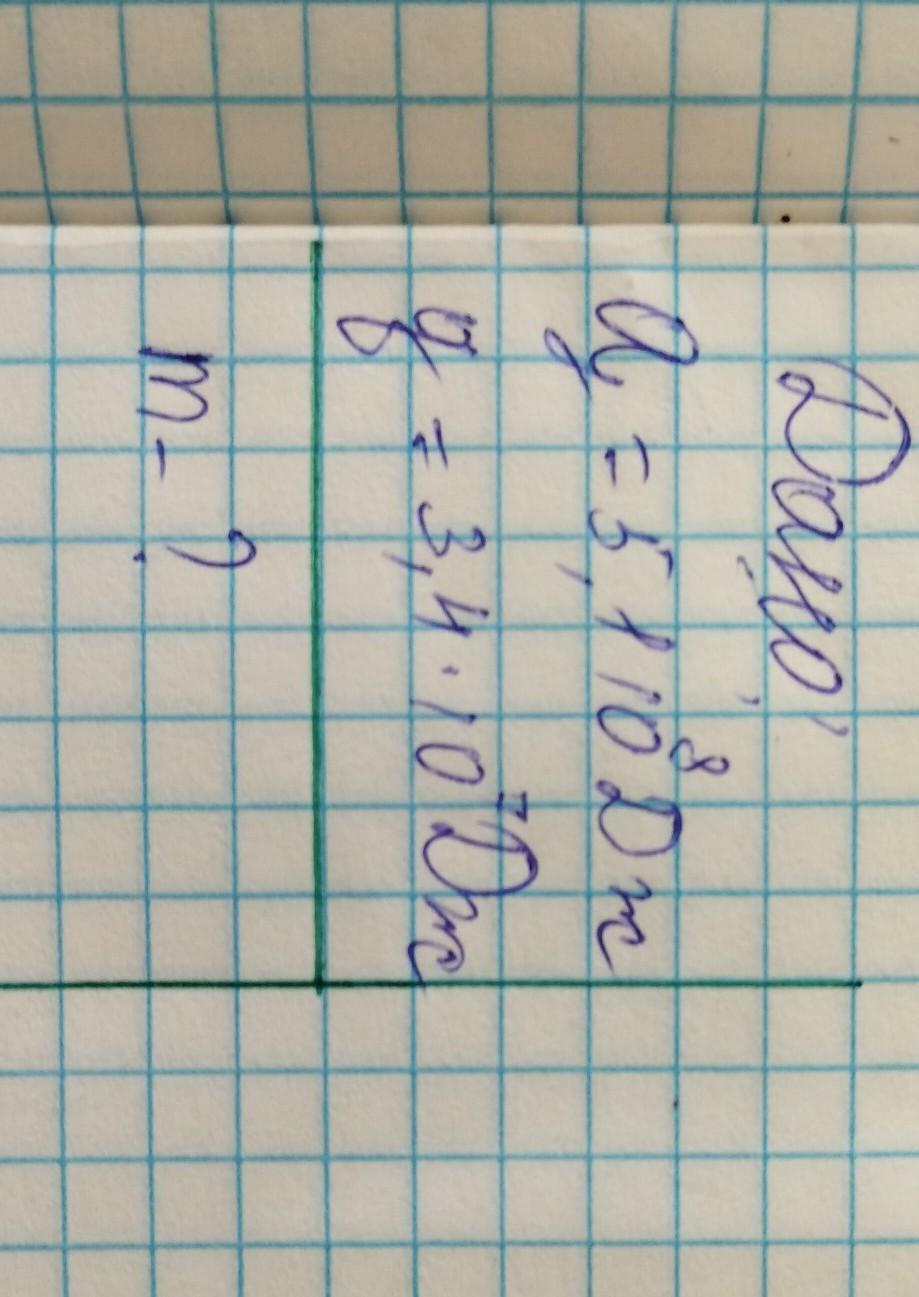 Дано:
Q = 5,1 10⁸ Дж
q = 3,4 · 10⁷ Дж
m - ?